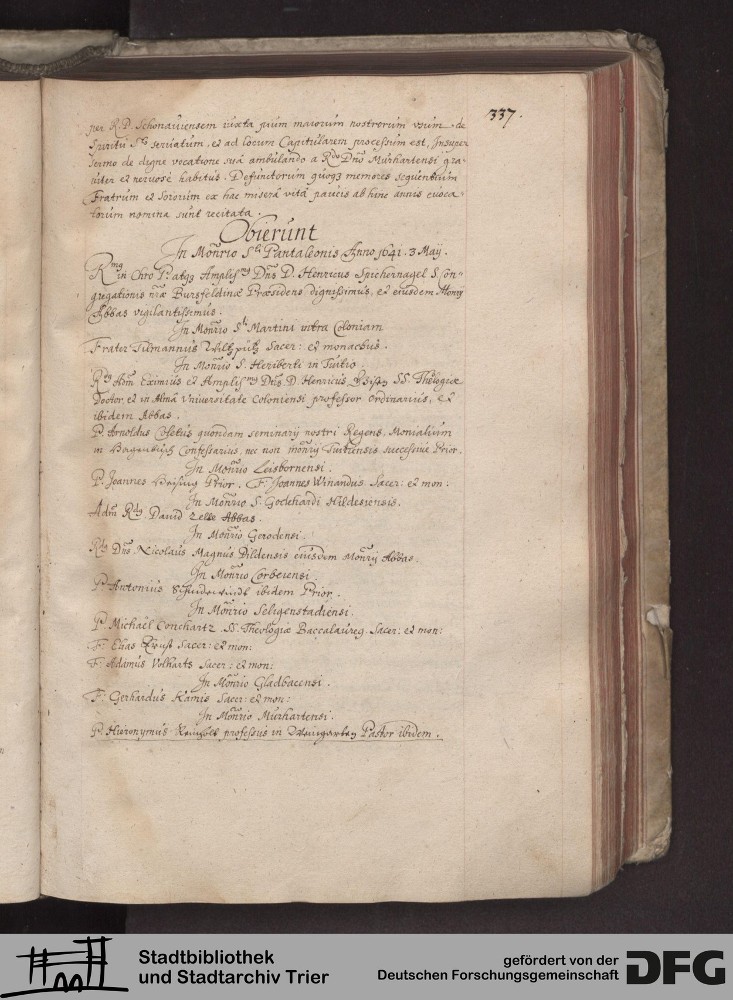 337.
per R. P. Schonaviensem iuxta pium maiorum nostrorum usum de
Spiritu Sto servatum, et ad locum Capitularem processum est, Insuper
sermo de digne vocatione suâ ambulando a Rdo Dno Murhartensi gra-
viter et nervose habitus. Defunctorum quoq3 memores sequentium
Fratrum et Sororum ex hac miserâ vitâ paucis ab hinc annis evoca-
torum nomina sunt recitata.
Obierunt
In Monrio Sti Pantaleonis Anno 1641. 3 Maÿ.
Rmq in Chro P. atq3 Amplismq Dns D. Henricus Spichernagel S. Con-
gregationis nræ Bursfeldinæ Præsidens dignissimus, et eiusdem Monrÿ
Abbas vigilantissimus.
In Monrio Sti Martini intra Coloniam
Frater Tilmannus Wiltzpütz Sacer: et monachus.
In Monrio S. Heriberti in Tuitio
Rdq Adm Eximius et Amplismq Dns D. Henricus SS. Theologiæ
Doctor et in Almâ Universitate Coloniensi professor ordinarius, et
ibidem Abbas.
P. Arnoldus Coletus quondam seminarÿ nostri Regens, Monialium
in Confessarius, nec non monrÿ Tuitienses successive Prior.
In Monrio Leisbornensi.
P. Joannes Prior. F. Joannes Winandus Sacer: et mon:
In Monrio S. Godehardi Hildesiensis.
Adm Rdq David Celle Abbas.
In Monrio Gerodensi.
Rdq Dns Nicolaus Magnus Dildensis eiusdem Monrÿ Abbas.
In Monrio Corbeiensi.
P. Antonius ibidem Prior.
In Monrio Seligenstadiensi.
P. Michaël Conchartz SS. Theologiæ Baccalaureq Sacer: et mon:
F. Elias Ernst Sacer: et mon:
F. Adamus Volharts Sacer: et mon:
In Monrio Gladbacensi.
F. Gerhardus Kamis Sacer: et mon:
In Monrio Murhartensi.
P. Hieronymus professus in Weingarten Pastor ibidem.
Stadtbibliothek
und Stadtarchiv Trier
gefördert von der
Deutschen Forschungsgemeinschaft
DFG